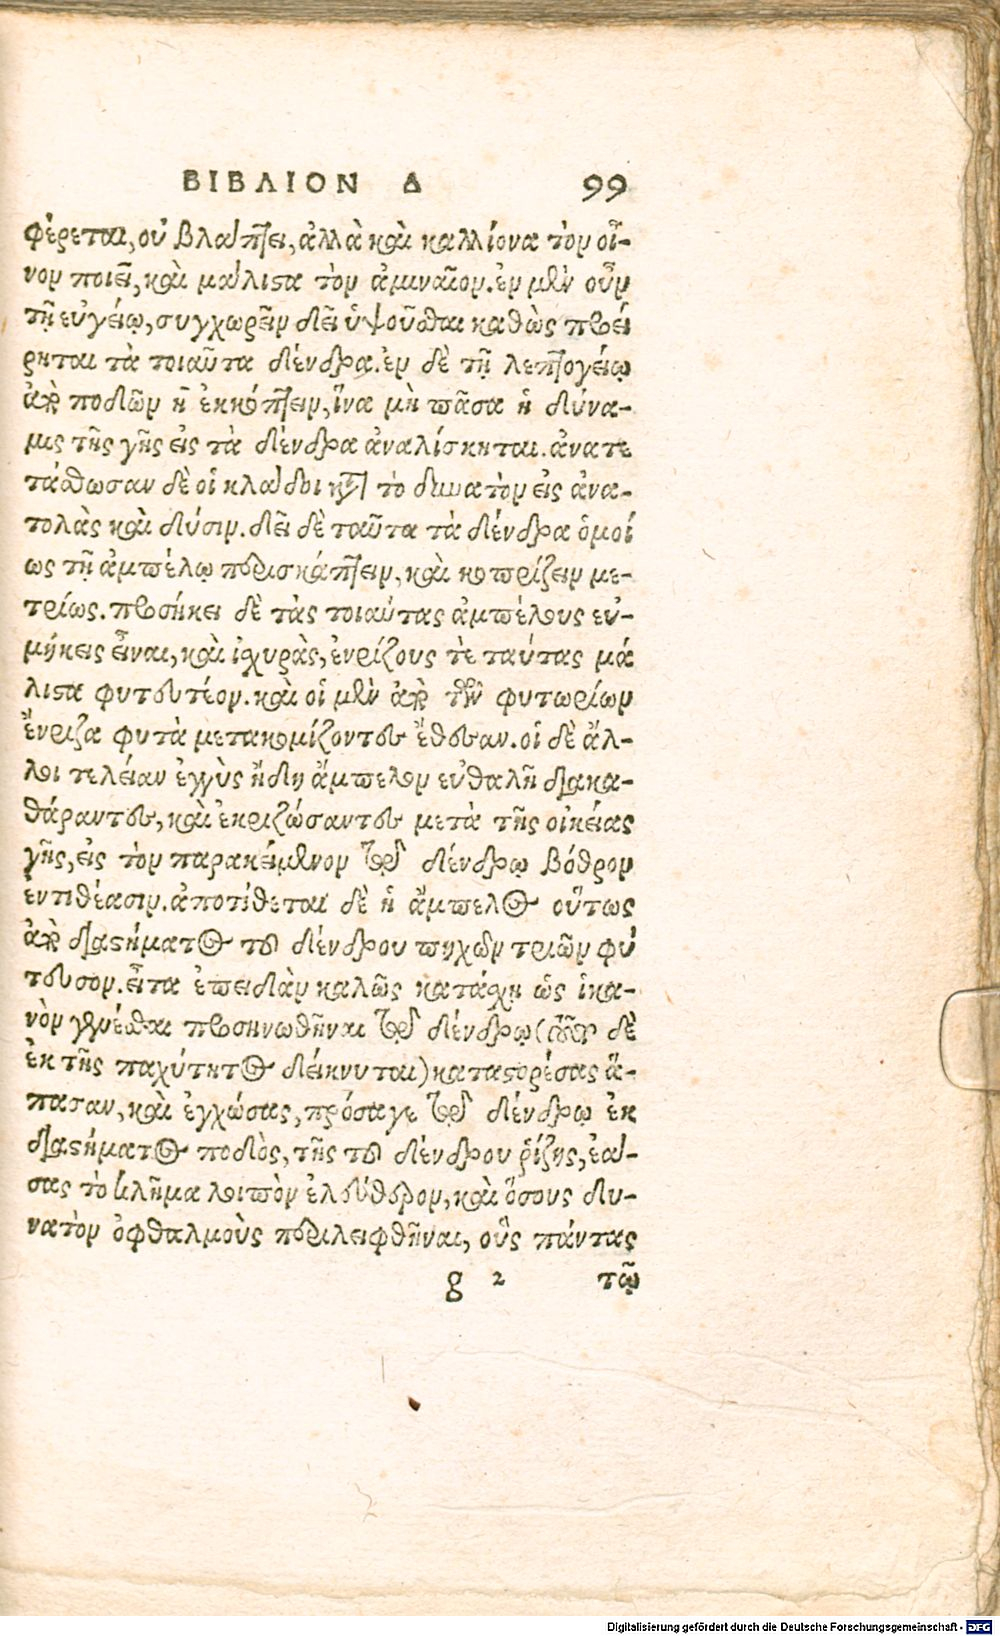 ΒΙΒΛΙΟΝ Δ 99
φέρεται, οὐ βλάπτει, ἀλλὰ καὶ καλλίονα τὸν οἶ-
νον ποιεῖ, καὶ μάλιστα τὸν ἀμιναῖον. ἐν μὲν οὖν
τῇ εὐγείῳ, συγχωρεῖν δεῖ ὑψοῦσθαι καθὼς προεί
ρηται τὰ τοιαῦτα δένδρα. ἐν δὲ τῇ λεπτογείῳ
ἀπὸ ποδῶν η ἐκκόπτειν, ἵνα μὴ πᾶσα ἡ δύνα-
μις τῆς γῆς εἰς τὰ δένδρα ἀναλίσκηται. ἀνατε
τάσθωσαν δὲ οἱ κλάδοι κατὰ τὸ δυνατὸν εἰς ἀνα-
τολὰς καὶ δύσιν. δεῖ δὲ ταῦτα τὰ δένδρα ὁμοί
ως τῇ ἀμπέλῳ περισκάπτειν, καὶ κοπρίζειν με-
τρίως. προσήκει δὲ τὰς τοιαύτας ἀμπέλους εὐ-
μήκεις εἶναι, καὶ ἰσχυρὰς, ἐνρίζους τὲ ταύτας μά
λιστα φυτευτέον. καὶ οἱ μὲν ἀπὸ τῶν φυτωρίων
ἔνριζα φυτὰ μετακομίζοντες ἔθεσαν. οἱ δὲ ἄλ-
λοι τελείαν ἐγγὺς ἤδη ἄμπελον εὐθαλῆ διακα-
θάραντες, καὶ ἐκριζώσαντες μετὰ τῆς οἰκείας
γῆς, εἰς τὸν παρακείμενον τῷ δένδρῳ βόθρον
εντιθέασιν. ἀποτίθεται δὲ ἡ ἄμπελος οὕτως
ἀπὸ διαστήματος τοῦ δένδρου πηχῶν τριῶν φύ
τευσον. εἶτα ἐπειδὰν καλῶς κατάσχῃ ὡς ἱκα-
νὸν γενέσθαι προσηνωθῆναι τῷ δένδρῳ ( δὲ
ἐκ τῆς παχύτητος δείκνυται) καταστορέσας ἅ-
πασαν, καὶ ἐγχώσας, πρόσαγε τῷ δένδρῳ ἐκ
διαστήματος ποδὸς, τῆς τοῦ δένδρου ῥίζης, ἐά-
σας τὸ κλῆμα λοιπὸν ἐλεύθερον, καὶ ὅσους δυ-
νατὸν ὀφθαλμοὺς περιλειφθῆναι, οὓς πάντας
g 2 τῷ
Digitalisierung gefördert durch die Deutsche Forschungsgemeinschaft - DFG